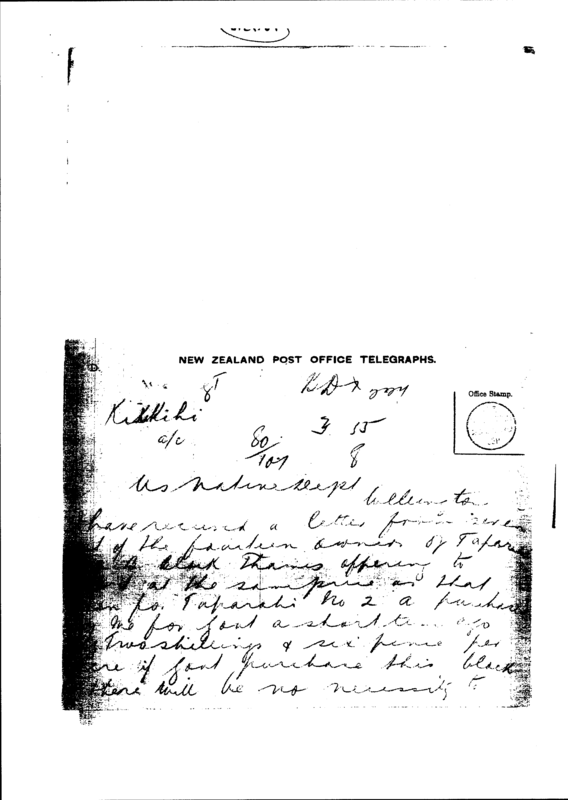 NEW ZEALAND POST OFFICE TELEGRAPHS.
Office Stamp.
Kihikihi
a/c
80/107
3 55
8
Us Native Dept Wellington
have received a letter from seven
of the fourteen owners of Tapara
Block Thames offering to
at the same price as that
for Taparahi No 2 a purchase
me for Govt a short time ago
Two shillings & six pence per
acre if Govt purchase this block
there will be no necessity to